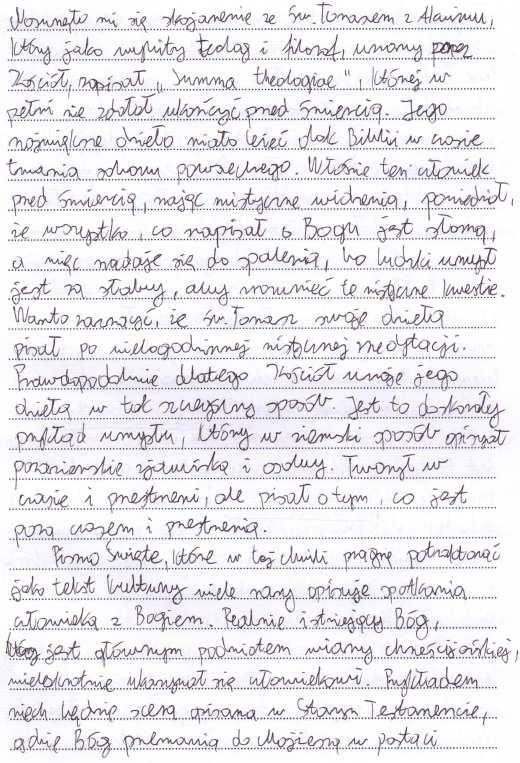 Nasunęło mi się skojarzenie ze św. Tomaszem z Akwinu,
który jako wybitny teolog i filozof, uznany przez
Kościół, napisał „Summa theologiae", której w
pełni nie zdołał ukończyć przed śmiercią. Jego
najważniejsze dzieło miało leżeć obok Biblii w czasie
trwania soboru powszechnego. Właśnie ten człowiek
przed śmiercią, mając mistyczne widzenia, powiedział,
że wszystko, co napisał o Bogu jest słomą,
a więc nadaje się do spalenia, bo ludzki umysł
jest za słaby, aby zrozumieć te mistyczne kwestie.
Warto zaznaczyć, że św. Tomasz swoje dzieła
pisał po wielogodzinnej mistycznej medytacji.
Prawdopodobnie dlatego Kościół uznaje jego
dzieła w tak szczególny sposób. Jest to doskonały
przykład umysłu, który w ziemski sposób opisywał
pozaziemskie zjawiska i osoby. Tworzył w
czasie i przestrzeni, ale pisał o tym, co jest
poza czasem i przestrzenią.
Pismo Święte, które w tej chwili pragnę potraktować
jako tekst kultury wiele razy opisuje spotkania
człowieka z Bogiem. Realnie istniejący Bóg,
który jest głównym podmiotem wiary chrześcijańskiej,
wielokrotnie ukazywał się człowiekowi. Przykładem
niech będzie scena opisana w Starym Testamencie,
gdzie Bóg przemawia do Mojżesza w postaci